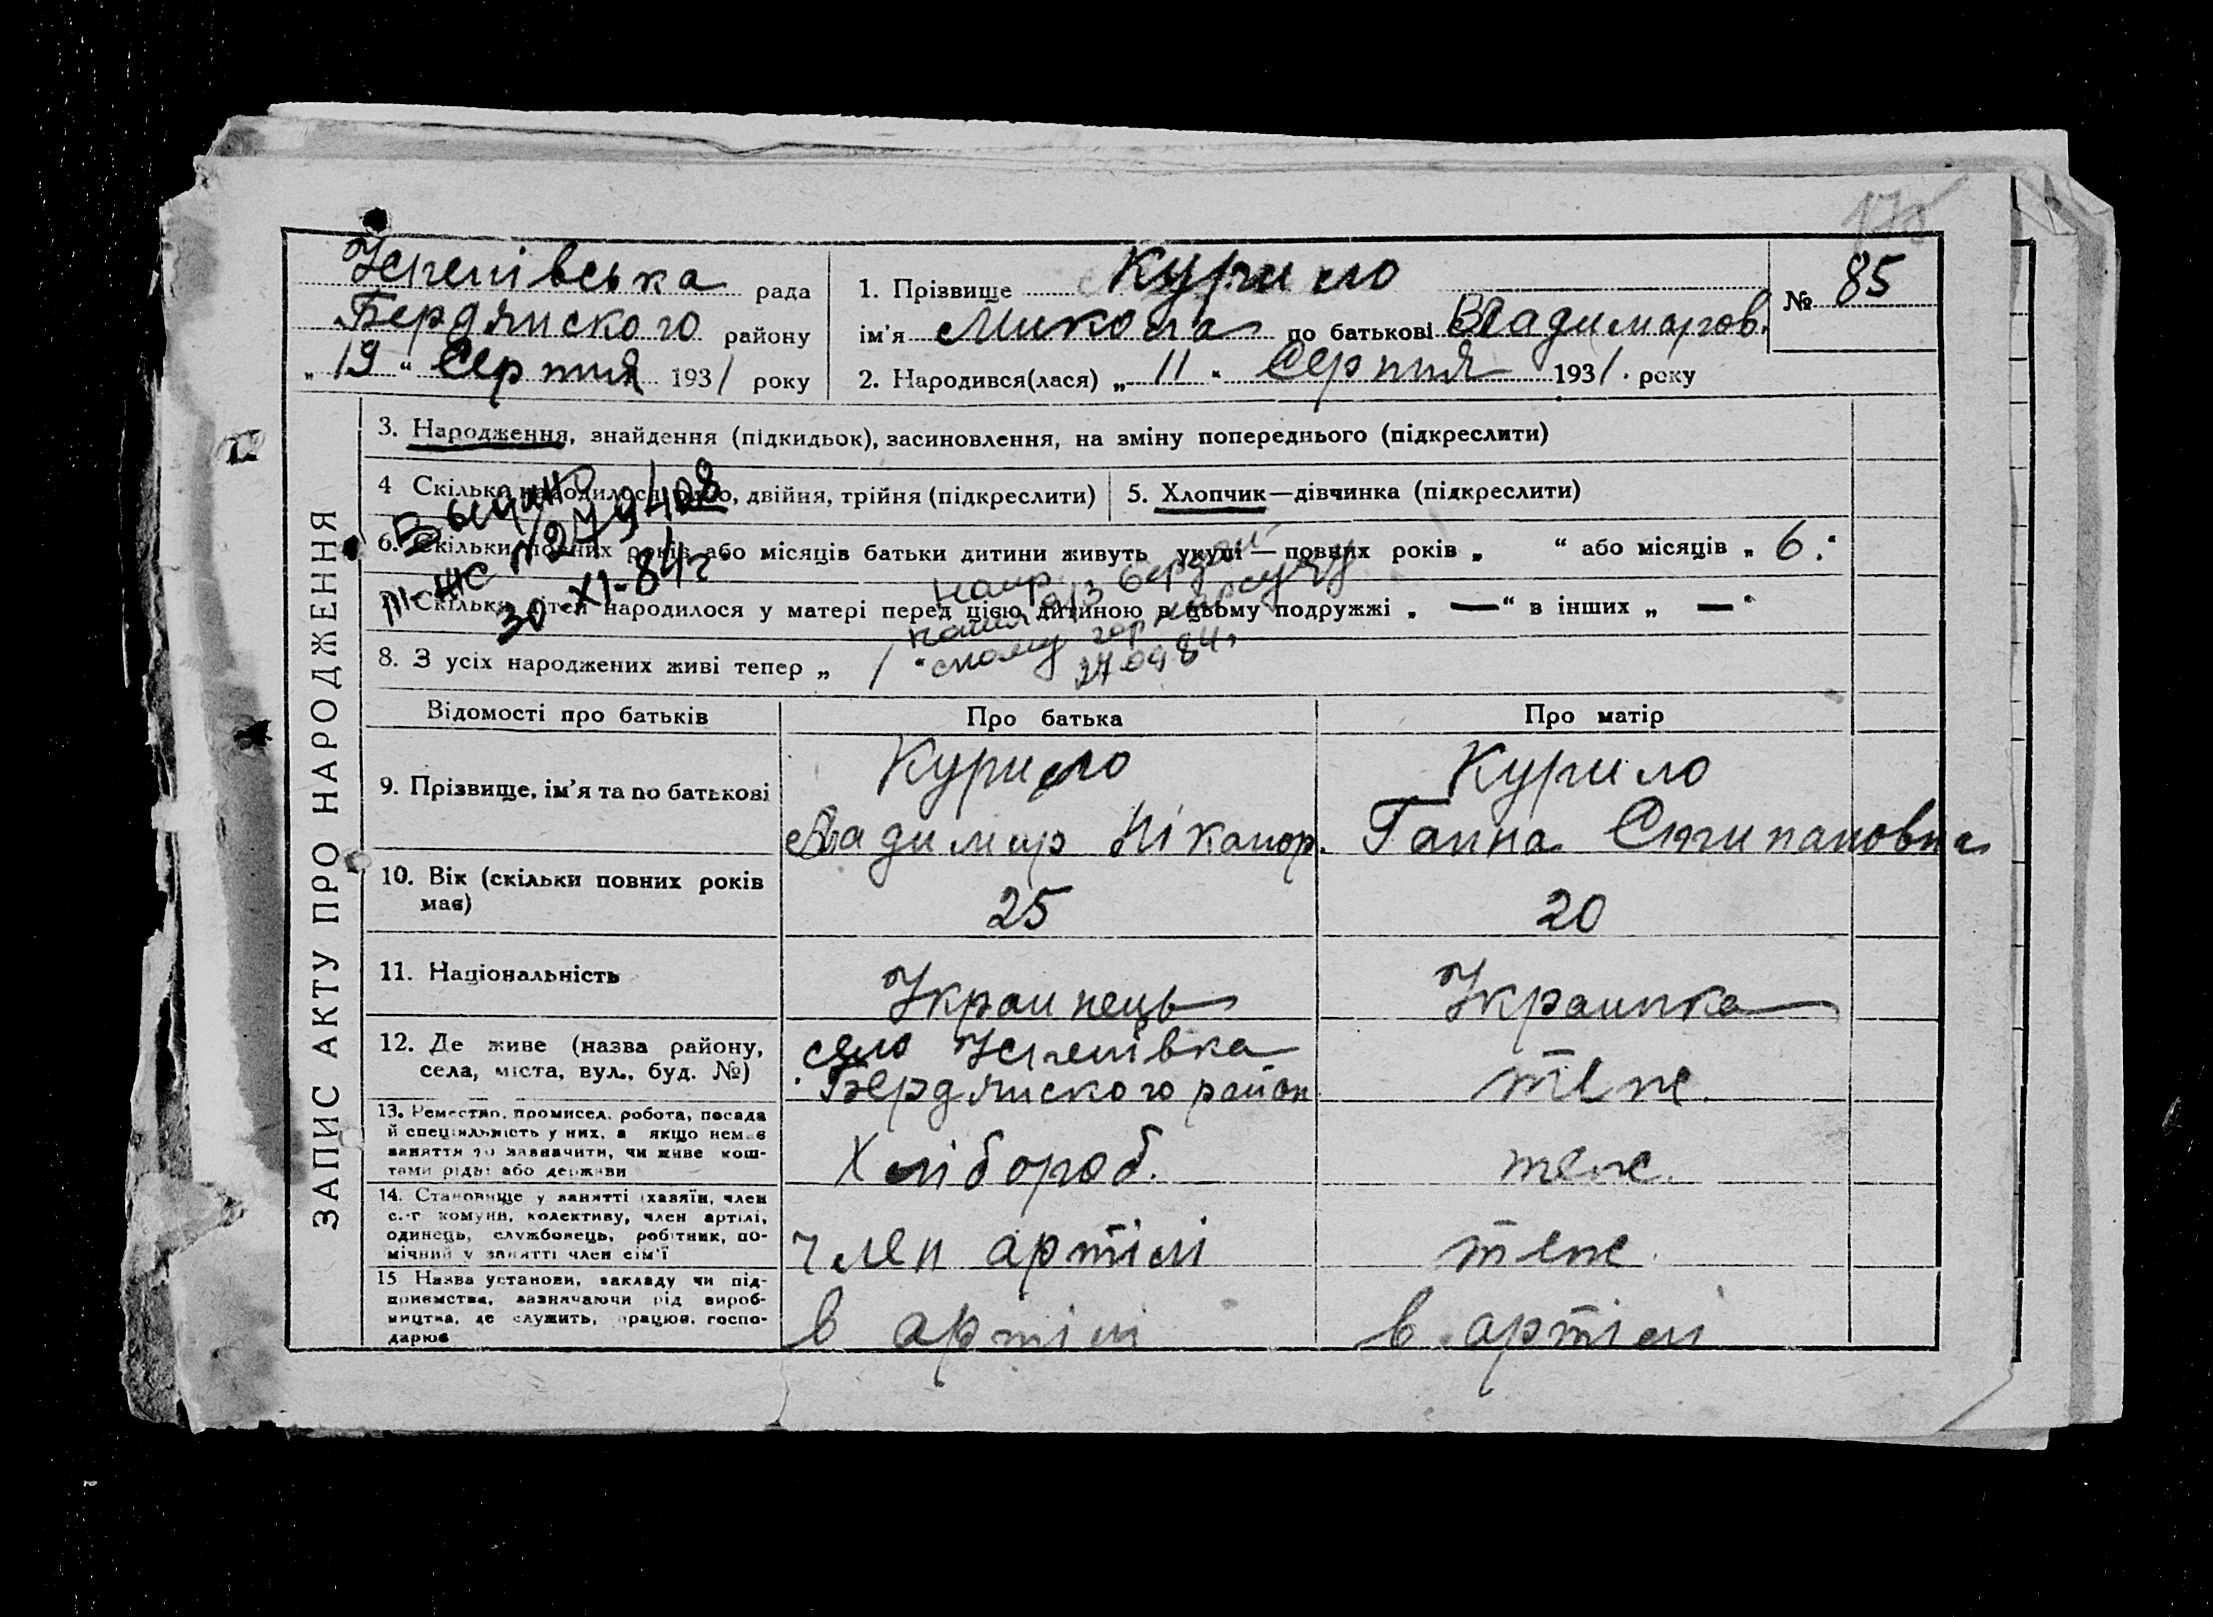 175
Успенівська рада
Бердянського району
„ 19 “ Серпня 1931 року
1. Прізвище Курило
ім'я Микола по батькові Владимиров.
2. Народився(лася) „ 11 “ Серпня 1931. року
№ 85
ЗАПИС АКТУ ПРО НАРОДЖЕННЯ
3. Народження, знайдення (підкидьок), засиновлення, на зміну попереднього (підкреслити)
4 Скільки народилося, двійня, трійня (підкреслити)
5. Хлопчик—дівчинка (підкреслити)
6. Скільки повних років або місяців батьки дитини живуть укупі — повних років „ “ або місяців „ 6. “
7. Скільки дітей народилося у матері перед цією дитиною в цьому подружжі „ — “ в інших „ — “
8. З усіх народжених живі тепер „ 1 “
30 XI-84г
27 09 84г
Відомості про батьків
Про батька
Про матір
9. Прізвище, ім'я та по батькові
Курило
Владимир Ніканор.
Курило
Ганна Стипановна
10. Вік (скільки повних років
має)
25
20
11. Національність
Украинець
Украинка
12. Де живе (назва району,
села, міста, вул., буд. №)
село Успенівка
Бердянского район
теж.
13. Ремество, промисел, робота, посада
й спеціяльність у них, а якщо немає
заняття то зазначити, чи живе кош-
тами рідні або держави
Хлібороб.
теж.
14. Становище у занятті (хазяїн, член
с.-г комуни, колективу, член артілі,
одинець, службовець, робітник, по-
мічний у занятті член сім'ї
член артілі
теж.
15 Назва установи, закладу чи під-
приємства, зазначаючи рід вироб-
ництва, де служить, працює, госпо-
дарює
в артілі
в артілі